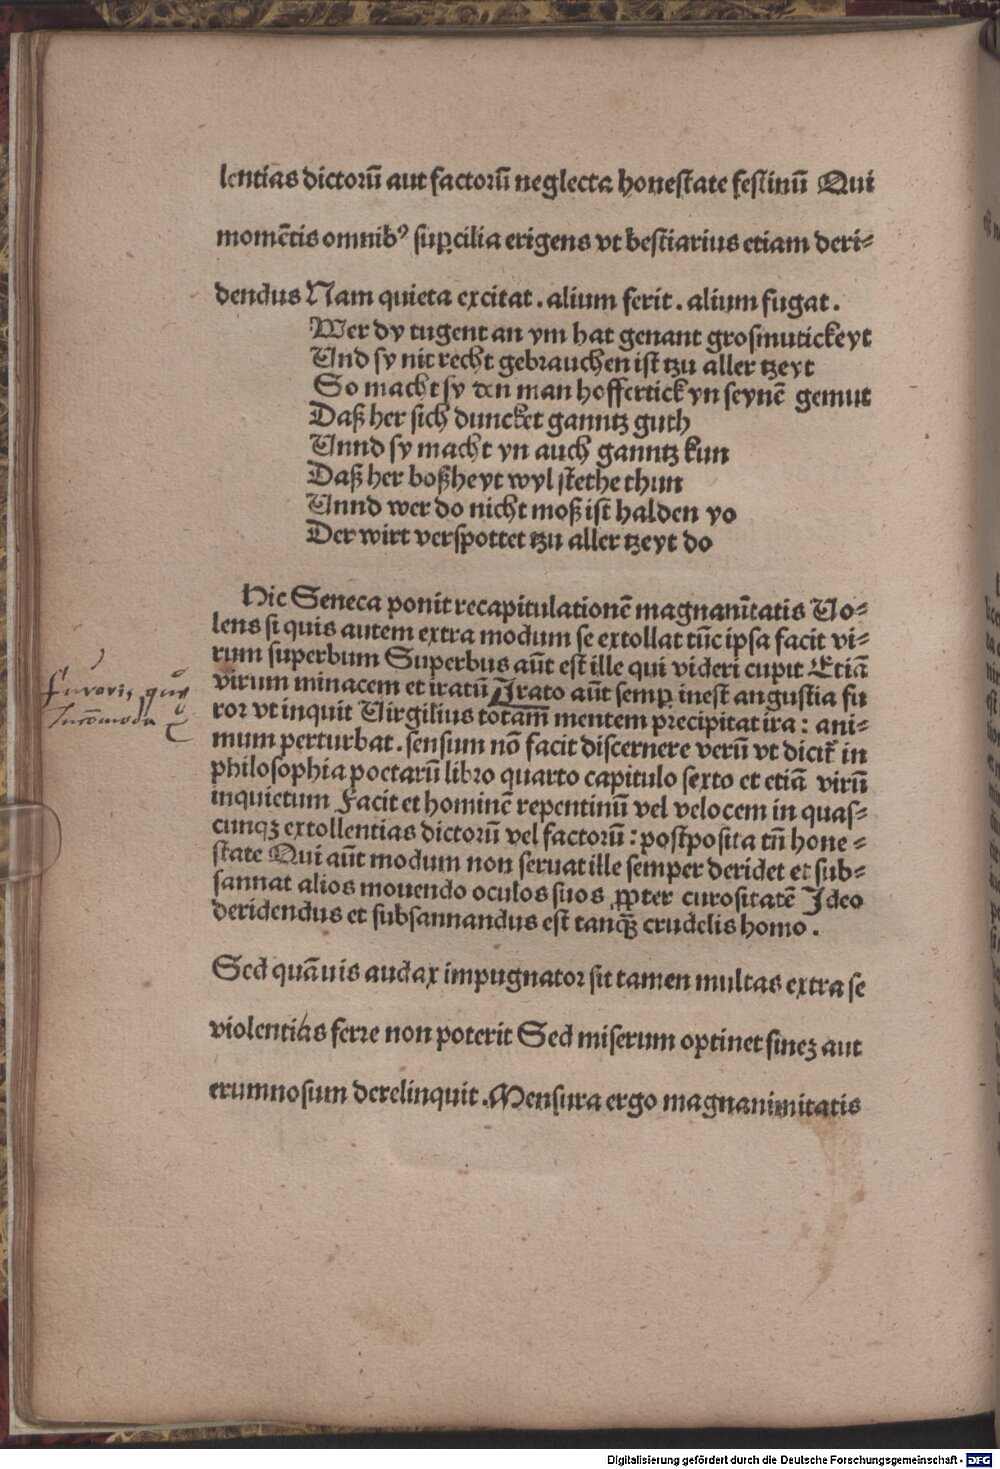 lentias dictorū aut factorū neglecta honestate festinū Qui
momētis omnibꝰ suꝑcilia erigens vt bestiarius etiam deri⸗
dendus Nam quieta excitat . alium ferit . alium fugat .
Wer dy tugent an ym hat genant grosmutickeyt
Und sy nit recht gebrauchen ist tzu aller tzeyt
So macht sy den man hoffertick yn seynē gemut
Daß her sich duncket ganntz guth
Unnd sy macht yn auch ganntz kun
Daß her boßheyt wyl stethe thun
Unnd wer do nicht moß ist halden yo
Der wirt verspottet tzu aller tzeyt do
Hic Seneca ponit recapitulationē magnanītatis Uo⸗
lens si quis autem extra modum se extollat tūc ipsa facit vi⸗
rum superbum Superbus aūt est ille qui videri cupit Etiā
virum minacem et iratū Irato aūt semꝑ inest angustia fu
ror vt inquit Uirgilius totam mentem precipitat ira : ani⸗
mum perturbat . sensum nō facit discernere verū vt dicit̄ in
philosophia poetarū libro quarto capitulo sexto et etiā virū
inquietum Facit et hominē repentinū vel velocem in quas⸗
cunqꝫ extollentias dictorū vel factorū : postposita tñ hone⸗
state Qui aūt modum non seruat ille semper deridet et sub⸗
sannat alios mouendo oculos suos ꝓpter curositatē Ideo
deridendus et subsannandus est tanqꝫ̄ crudelis homo .
Sed quāuis audax impugnator sit tamen multas extra se
violentias ferre non poterit Sed miserum optinet sineꝫ aut
erumnosum derelinquit . Mensura ergo magnanimitatis
Furoris
Incōmoda
Digitalisierung gefördert durch die Deutsche Forschungsgemeinschaft - DFG